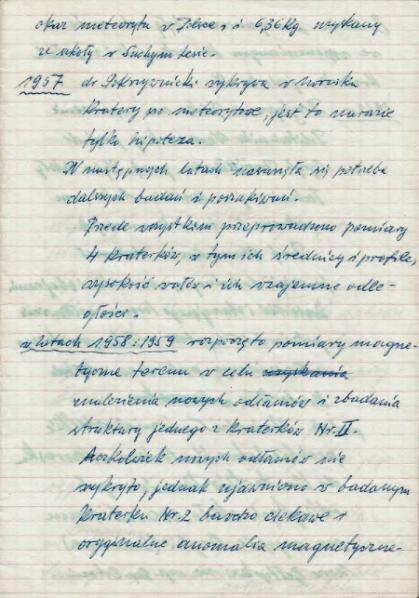 okaz meteorytu w Polsce, i 6,36 Kg. wykany
ze szkoły w Suchym Lesie.
1957 dr Pokrzywnicki wykrywa w Morasku
kratery po meteorytowe, jest to narazie
tylko hipoteza.
W następnych latach nasunęła się potrzeba
dalszych badań i poszukiwań.
Przede wszystkim przeprowadzono pomiary
4 kraterków, w tym ich średnicy i profile,
wysokość wałów i ich wzajemne odle-
głości.
w latach 1958 i 1959 rozpoczęto pomiary magne-
tyczne terenu w celu uzyskania
znalezienia nowych odłamów i zbadania
struktury jednego z kraterków Nr. II.
Aczkolwiek nowych odłamów nie
wykryto, jednak ujawniono w badanym
kraterku Nr. 2 bardzo ciekawe i
oryginalne anomalia magnetyczne-